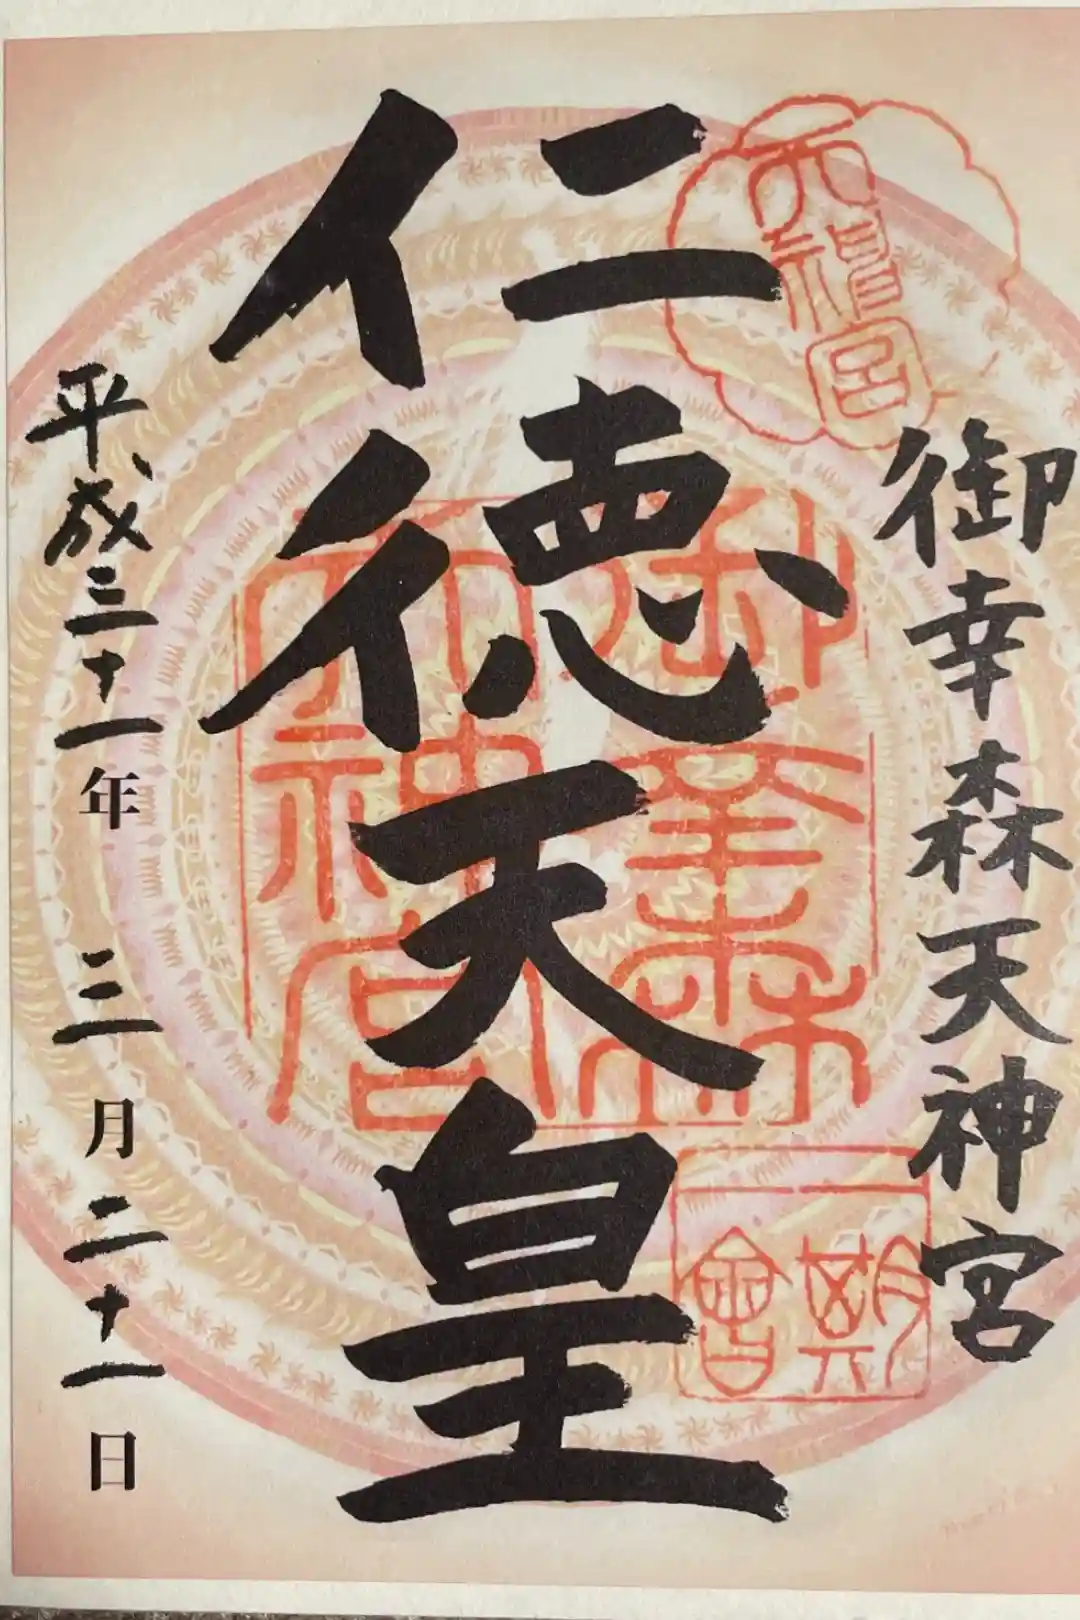 御幸森天神宮
仁徳天皇
平成三十一年 三月二十一日
天神宮
御幸森
天神宮